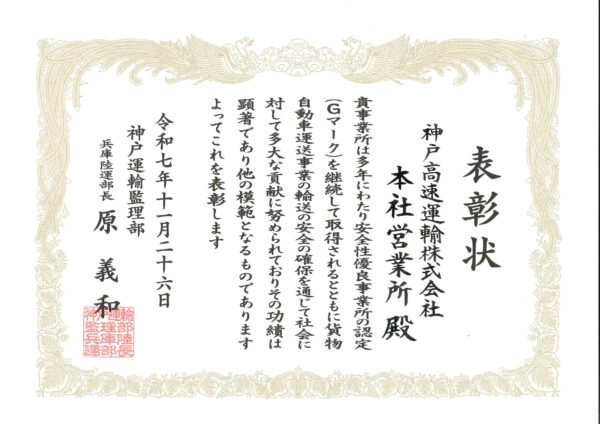 表彰状
神戸高速運輸株式会社
本社営業所 殿
貴事業所は多年にわたり安全性優良事業所の認定
(Gマーク)を継続して取得されるとともに貨物
自動車運送事業の輸送の安全の確保を通じて社会に
対して多大な貢献に努められておりその功績は
顕著であり他の模範となるものであります
よってこれを表彰します
令和七年十一月二十六日
神戸運輸監理部
兵庫陸運部長 原 義和